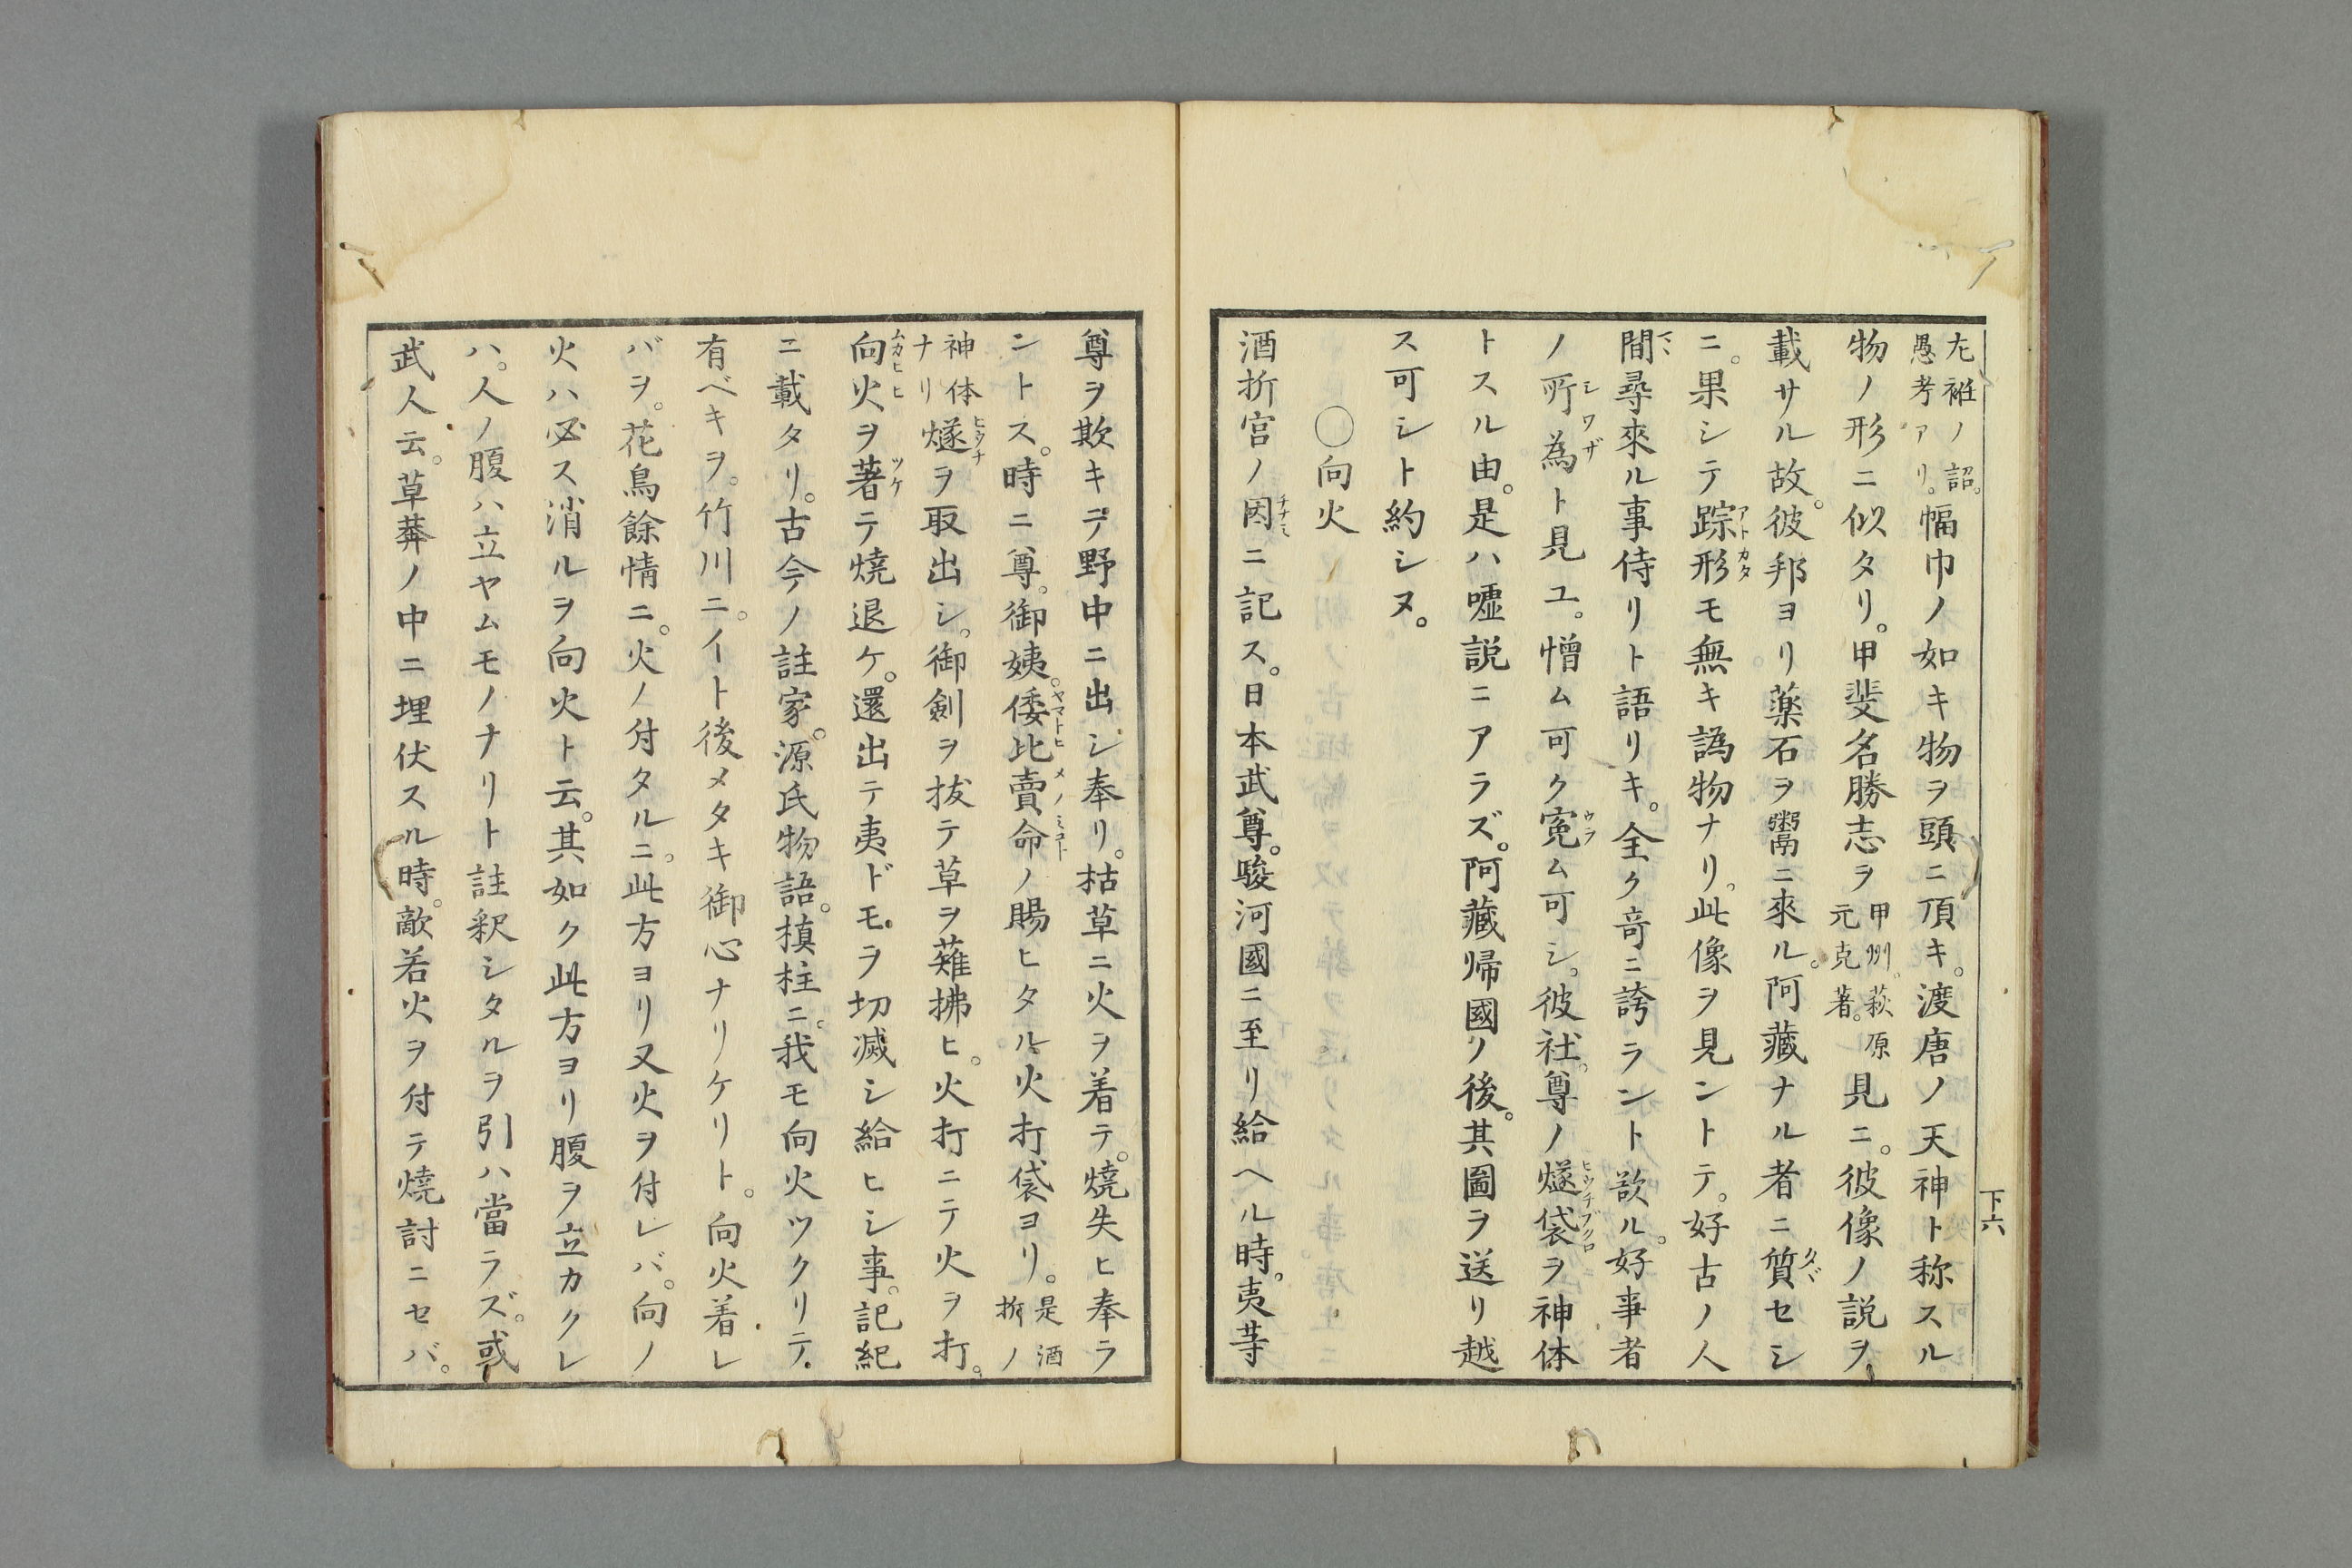 左袵ノ詔。
愚考アリ。
幅巾ノ如キ物ヲ頭ニ頂キ。渡唐ノ天神ト称スル
物ノ形ニ似タリ。甲斐名勝志ヲ
甲州。萩原
元克著。
見ニ。彼像ノ説ヲ
載サル故。彼邦ヨリ薬石ヲ鬻ニ來ル。阿藏ナル者ニ質セシ
ニ。果シテ踪形モ無キ譌物ナリ。此像ヲ見ントテ。好古ノ人
間尋來ル事侍リト語リキ。全ク奇ニ誇ラント欲ル。好事者
ノ所為ト見ユ。憎ム可ク寃ム可シ。彼社。尊ノ燧袋ヲ神体
トスル由。是ハ嘘説ニアラズ。阿藏帰國ノ後。其圖ヲ送リ越
ス可シト約シヌ。
〇向火
酒折宮ノ因ニ記ス。日本武尊。駿河國ニ至リ給ヘル時。夷䓁
下六
尊ヲ欺キテ野中ニ出シ奉リ。枯草ニ火ヲ着テ。燒失ヒ奉ラ
ントス。時ニ尊。御姨。倭比賣命ノ賜ヒタル火打袋ヨリ。
是酒
折ノ
神体
ナリ
燧ヲ取出シ。御劍ヲ拔テ草ヲ薙拂ヒ。火打ニテ火ヲ打。
向火ヲ著テ燒退ケ。還出テ夷ドモヲ切滅シ給ヒシ事。記紀
ニ載タリ。古今ノ註家。源氏物語。槙柱ニ。我モ向火ツクリテ。
有ベキヲ。竹川ニ。イト後メタキ御心ナリケリト。向火着レ
バヲ。花鳥餘情ニ。火ノ付タルニ。此方ヨリ又火ヲ付レバ。向ノ
火ハ必ス消ルヲ向火ト云。其如ク此方ヨリ腹ヲ立カクレ
ハ。人ノ腹ハ立ヤムモノナリト註釈シタルヲ引ハ當ラズ。或
武人云。草莽ノ中ニ埋伏スル時。敵若火ヲ付テ燒討ニセバ。